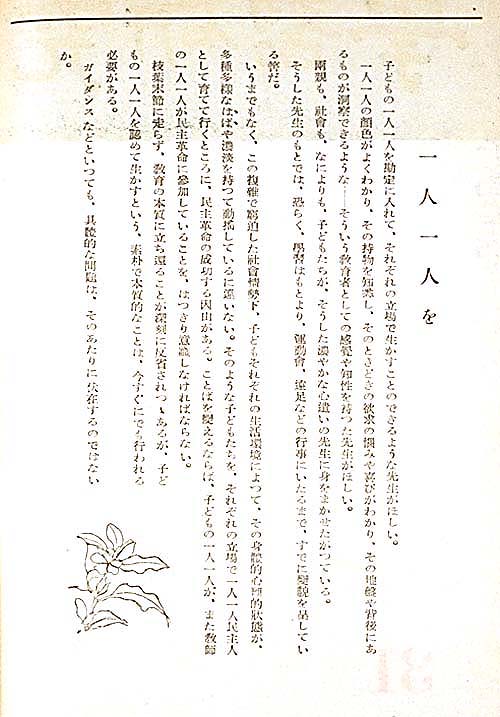 一人一人を
子どもの一人一人を勘定に入れて、それぞれの立場で生かすことのできるような先生がほしい。
一人一人の顏色がよくわかり、その持物を知悉し、そのときどきの欲求の惱みや喜びがわかり、その地盤や背後にあ
るものが洞察できるような──そういう教育者としての感覺や知性を持つた先生がほしい。
兩親も、社會も、なによりも、子どもたちが、そうした濃やかな心遣いの先生に身をまかせたがつている。
そうした先生のもとでは、恐らく、學習はもとより、運動會、遠足などの行事にいたるまで、すでに變貌を呈してい
る筈だ。
いうまでもなく、この複雜で窮迫した社會情勢下、子どもそれぞれの生活環境によつて、その身體的心理的狀態が、
多種多樣なはばや濃淡を持つて動搖しているに違いない。そのような子どもたちを、それぞれの立場で一人一人民主人
として育てて行くところに、民主革命の成功する因由がある。ことばを變えるならば、子どもの一人一人が、また教師
の一人一人が民主革命に參加していることを、はつきり意識しなければならない。
枝葉末節に走らず、教育の本質に立ち還ることが深刻に反省されつつあるが、子ど
もの一人一人を認めて生かすという、素朴で本質的なことは、今すぐにでも行われる
必要がある。
ガイダンスなどといつても、具體的な問題は、そのあたりに伏在するのではない
か。